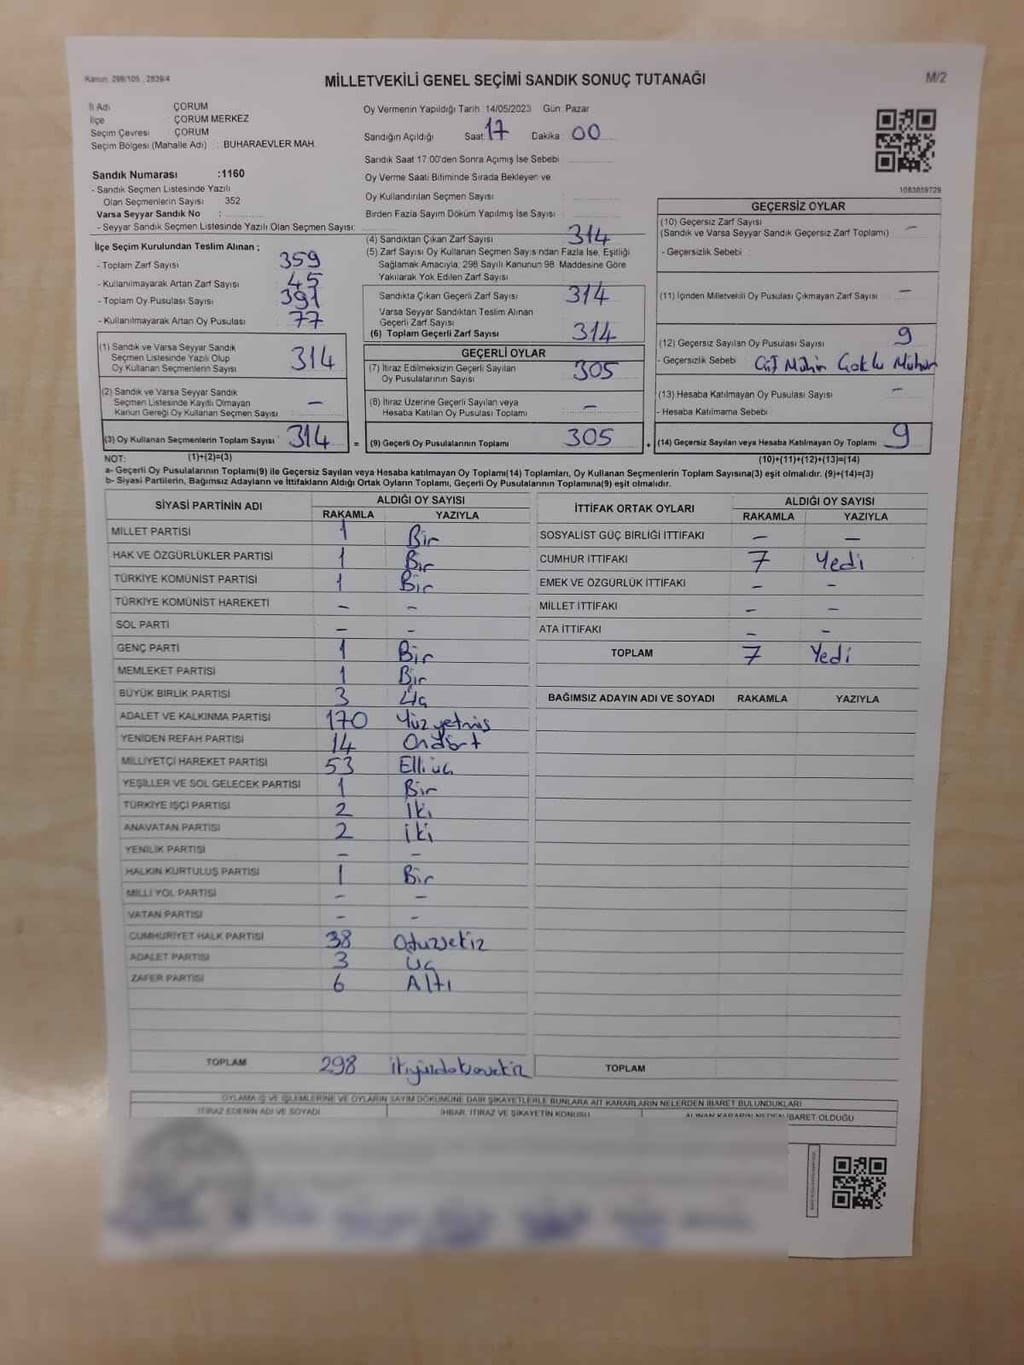 Kanun: 298/105 , 2839/4
MİLLETVEKİLİ GENEL SEÇİMİ SANDIK SONUÇ TUTANAĞI
M/2
İl Adı ÇORUM
İlçe ÇORUM MERKEZ
Seçim Çevresi ÇORUM
Seçim Bölgesi (Mahalle Adı) : BUHARAEVLER MAH.
Sandık Numarası :1160
- Sandık Seçmen Listesinde Yazılı
Olan Seçmenlerin Sayısı 352
Varsa Seyyar Sandık No :
- Seyyar Sandık Seçmen Listesinde Yazılı Olan Seçmen Sayısı:
Oy Vermenin Yapıldığı Tarih: 14/05/2023 Gün: Pazar
Sandığın Açıldığı Saat: 17 Dakika: 00
Sandık Saat 17.00'den Sonra Açılmış İse Sebebi
Oy Verme Saati Bitiminde Sırada Bekleyen ve
Oy Kullandırılan Seçmen Sayısı
Birden Fazla Sayım Döküm Yapılmış İse Sayısı :
1083859729
İlçe Seçim Kurulundan Teslim Alınan ;
- Toplam Zarf Sayısı 359
- Kullanılmayarak Artan Zarf Sayısı 45
- Toplam Oy Pusulası Sayısı 391
- Kullanılmayarak Artan Oy Pusulası 77
(1) Sandık ve Varsa Seyyar Sandık
Seçmen Listesinde Yazılı Olup
Oy Kullanan Seçmenlerin Sayısı 314
(2) Sandık ve Varsa Seyyar Sandık
Seçmen Listesinde Kayıtlı Olmayan
Kanun Gereği Oy Kullanan Seçmen Sayısı –
(3) Oy Kullanan Seçmenlerin Toplam Sayısı 314 =
(1)+(2)=(3)
(4) Sandıktan Çıkan Zarf Sayısı 314
(5) Zarf Sayısı Oy Kullanan Seçmen Sayısından Fazla İse, Eşitliği
Sağlamak Amacıyla; 298 Sayılı Kanunun 98. Maddesine Göre
Yakılarak Yok Edilen Zarf Sayısı
Sandıkta Çıkan Geçerli Zarf Sayısı 314
Varsa Seyyar Sandıktan Teslim Alınan
Geçerli Zarf Sayısı
(6) Toplam Geçerli Zarf Sayısı 314
GEÇERLİ OYLAR
(7) İtiraz Edilmeksizin Geçerli Sayılan
Oy Pusulalarının Sayısı 305
(8) İtiraz Üzerine Geçerli Sayılan veya
Hesaba Katılan Oy Pusulası Toplamı –
(9) Geçerli Oy Pusulalarının Toplamı 305 +
GEÇERSİZ OYLAR
(10) Geçersiz Zarf Sayısı –
(Sandık ve Varsa Seyyar Sandık Geçersiz Zarf Toplamı)
- Geçersizlik Sebebi :
(11) İçinden Milletvekili Oy Pusulası Çıkmayan Zarf Sayısı –
(12) Geçersiz Sayılan Oy Pusulası Sayısı 9
- Geçersizlik Sebebi : Çift Mühür Çoklu Mühür
(13) Hesaba Katılmayan Oy Pusulası Sayısı –
- Hesaba Katılmama Sebebi
(14) Geçersiz Sayılan veya Hesaba Katılmayan Oy Toplamı 9
(10)+(11)+(12)+(13)=(14)
NOT:
a- Geçerli Oy Pusulalarının Toplamı(9) ile Geçersiz Sayılan veya Hesaba katılmayan Oy Toplamı(14) Toplamları, Oy Kullanan Seçmenlerin Toplam Sayısına(3) eşit olmalıdır. (9)+(14)=(3)
b- Siyasi Partilerin, Bağımsız Adayların ve İttifakların Aldığı Ortak Oyların Toplamı, Geçerli Oy Pusulalarının Toplamına(9) eşit olmalıdır.
SİYASİ PARTİNİN ADI ALDIĞI OY SAYISI
RAKAMLA YAZIYLA
MİLLET PARTİSİ 1 Bir
HAK VE ÖZGÜRLÜKLER PARTİSİ 1 Bir
TÜRKİYE KOMÜNİST PARTİSİ 1 Bir
TÜRKİYE KOMÜNİST HAREKETİ – –
SOL PARTİ – –
GENÇ PARTİ 1 Bir
MEMLEKET PARTİSİ 1 Bir
BÜYÜK BİRLİK PARTİSİ 3 Üç
ADALET VE KALKINMA PARTİSİ 170 Yüzyetmiş
YENİDEN REFAH PARTİSİ 14 Ondört
MİLLİYETÇİ HAREKET PARTİSİ 53 Elliüç
YEŞİLLER VE SOL GELECEK PARTİSİ 1 Bir
TÜRKİYE İŞÇİ PARTİSİ 2 İki
ANAVATAN PARTİSİ 2 İki
YENİLİK PARTİSİ – –
HALKIN KURTULUŞ PARTİSİ 1 Bir
MİLLİ YOL PARTİSİ – –
VATAN PARTİSİ – –
CUMHURİYET HALK PARTİSİ 38 Otuzsekiz
ADALET PARTİSİ 3 Üç
ZAFER PARTİSİ 6 Altı
TOPLAM 298 ikiyüzdoksansekiz
İTTİFAK ORTAK OYLARI ALDIĞI OY SAYISI
RAKAMLA YAZIYLA
SOSYALİST GÜÇ BİRLİĞİ İTTİFAKI – –
CUMHUR İTTİFAKI 7 Yedi
EMEK VE ÖZGÜRLÜK İTTİFAKI – –
MİLLET İTTİFAKI – –
ATA İTTİFAKI – –
TOPLAM 7 Yedi
BAĞIMSIZ ADAYIN ADI VE SOYADI RAKAMLA YAZIYLA
TOPLAM
OYLAMA İŞ VE İŞLEMLERİNE VE OYLARIN SAYIM DÖKÜMÜNE DAİR ŞİKAYETLERLE BUNLARA AİT KARARLARIN NELERDEN İBARET BULUNDUKLARI
İTİRAZ EDENİN ADI VE SOYADI İHBAR, İTİRAZ VE ŞİKAYETİN KONUSU ALINAN KARARIN NEDEN İBARET OLDUĞU